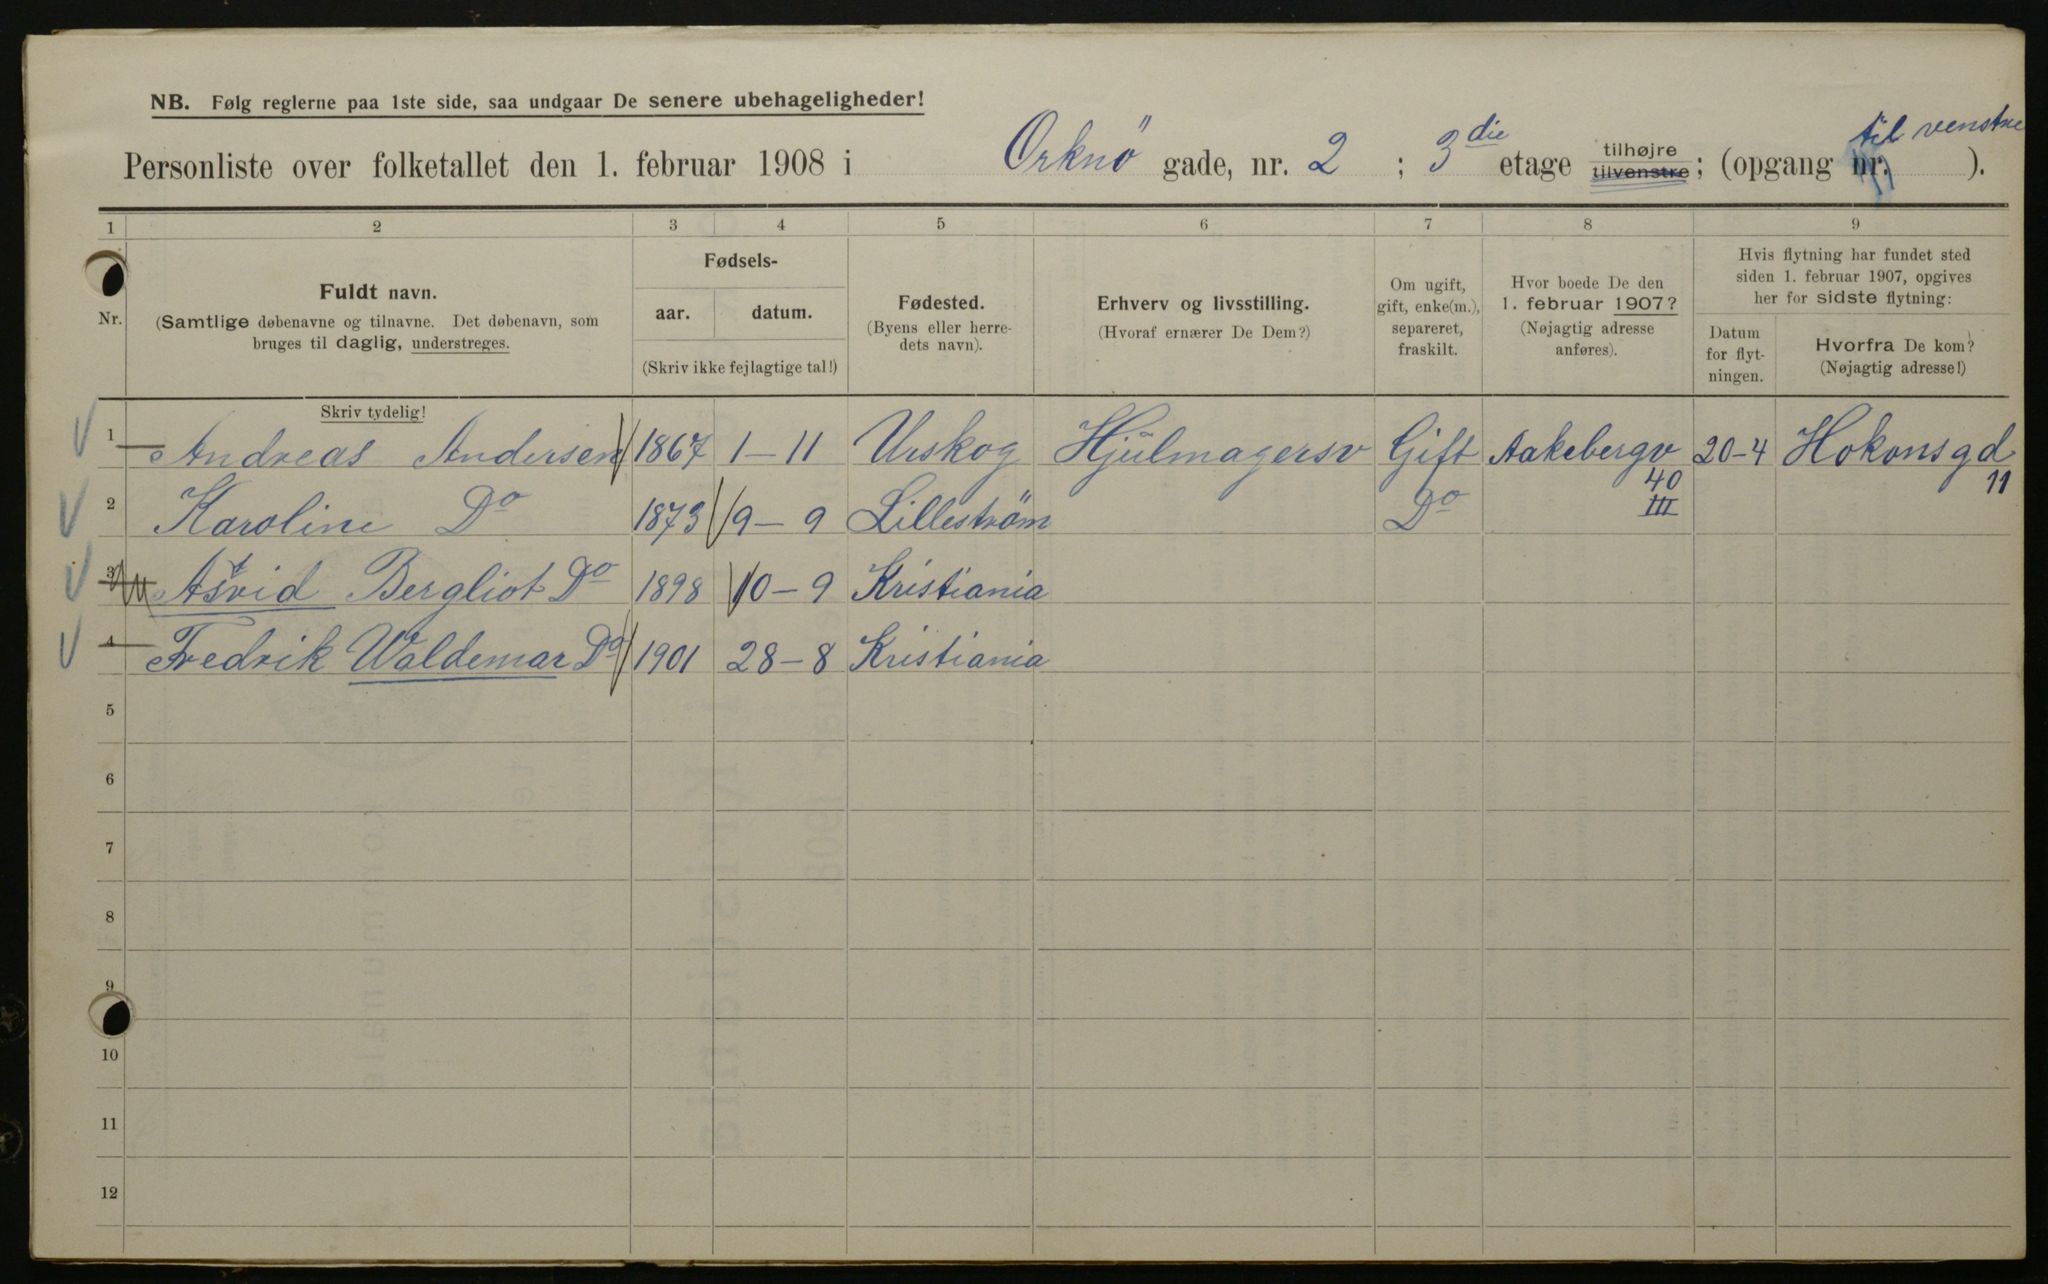 NB. Følg reglerne paa 1ste side, saa undgaar De senere ubehageligheder!
Personliste over folketallet den 1. februar 1908 i Orknö gade, nr. 2 ; 3die etage tilhøjre tilvenstre; (opgang nr. til venstre ).
1 2 3 4 5 6 7 8 9
Nr.
Fuldt navn.
(Samtlige døbenavne og tilnavne. Det døbenavn, som
bruges til daglig, understreges.
Skriv tydelig!
Fødsels-
aar. datum.
(Skriv ikke fejlagtige tal!)
Fødested.
(Byens eller herre-
dets navn).
Erhverv og livsstilling.
(Hvoraf ernærer De Dem?)
Om ugift,
gift, enke(m.),
separeret,
fraskilt.
Hvor boede De den
1. februar 1907?
(Nøjagtig adresse
anføres).
Hvis flytning har fundet sted
siden 1. februar 1907, opgives
her for sidste flytning:
Datum
for flyt-
ningen.
Hvorfra De kom?
(Nøjagtig adresse!)
1 Andreas Andersen 1867 1-11 Urskog Hjulmagersv Gift Aakebergv 40 III 20-4 Hokonsgd 11
2 Karoline Do 1873 9-9 Lilleström Do
3 Bergliot Do 1898 10-9 Kristiania
4 Fredrik Waldemar Do 1901 28-8 Kristiania
5
6
7
8
9
10
11
12